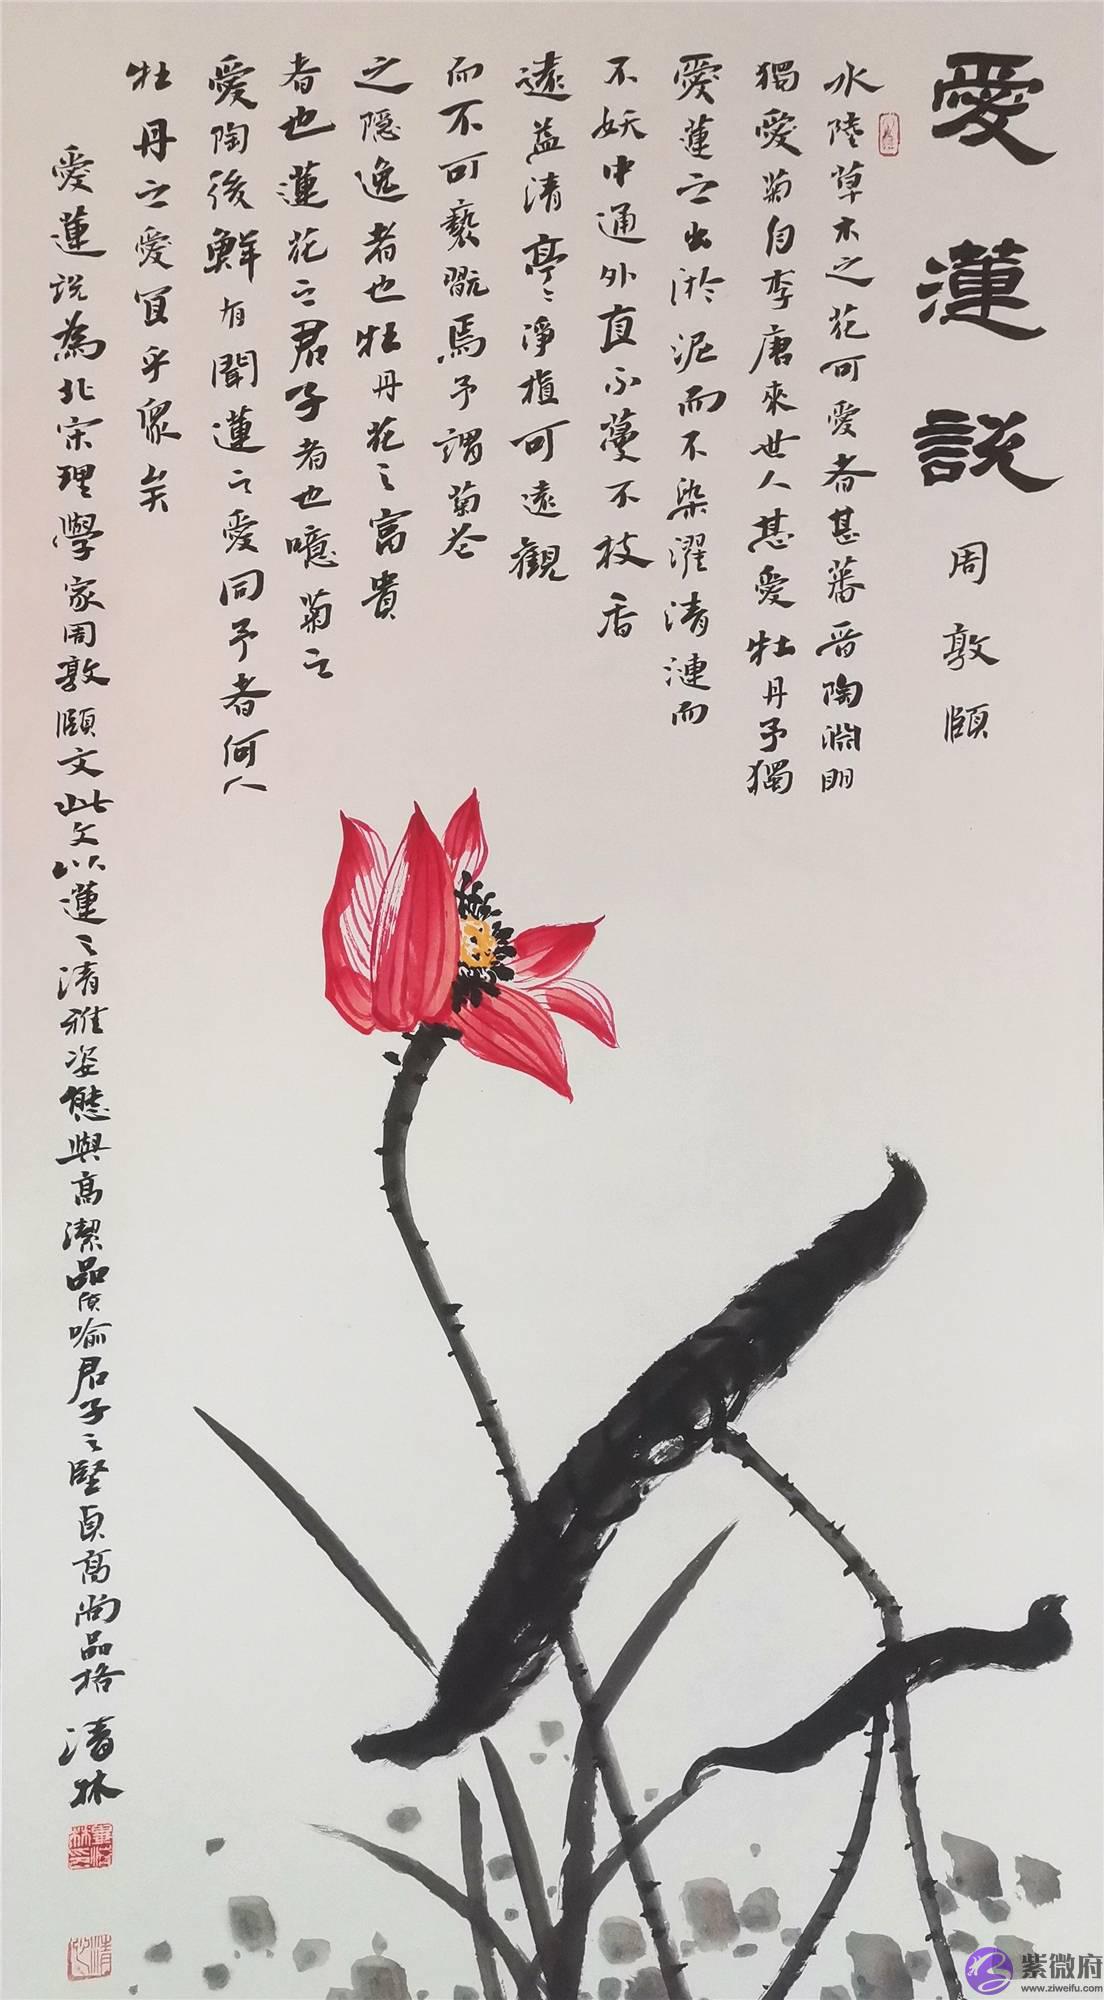 愛蓮説
周敦頤
水陸草木之花可愛者甚蕃晉陶淵明
獨愛菊自李唐來世人甚愛牡丹予獨
愛蓮之出淤泥而不染濯清漣而
不妖中通外直不蔓不枝香
遠益清亭亭淨植可遠觀
而不可褻翫焉予謂菊花
之隱逸者也牡丹花之富貴
者也蓮花之君子者也噫菊之
愛陶後鮮有聞蓮之愛同予者何人
牡丹之愛宜乎衆矣
愛蓮説為北宋理學家周敦頤文此文以蓮之清雅姿態與高潔品质喻君子之堅貞高尚品格 清林
紫微府
www.ziweifu.com